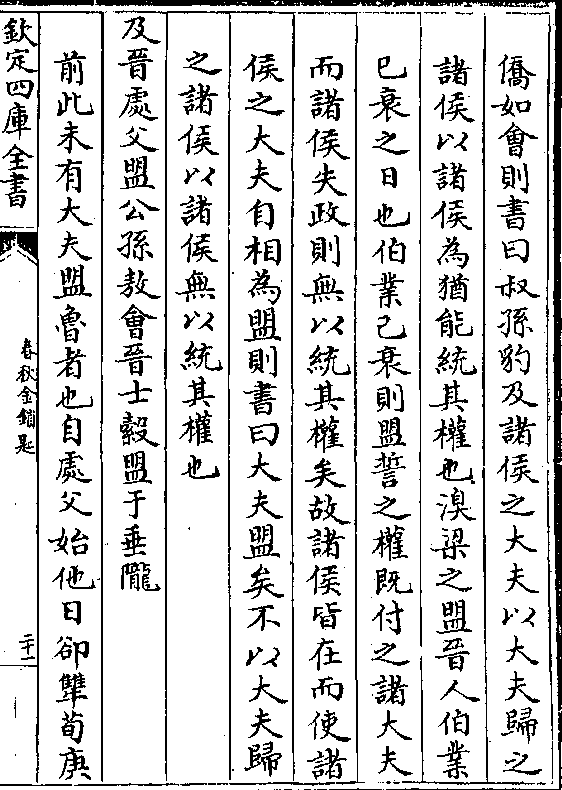 僑如會則書曰叔孫豹及諸侯之大夫以大夫歸之
諸侯以諸侯為猶能統其權也湨梁之盟晉人伯業
已衰之日也伯業已衰則盟誓之權既付之諸大夫
而諸侯失政則無以統其權矣故諸侯皆在而使諸
侯之大夫自相為盟則書曰大夫盟矣不以大夫歸
之諸侯以諸侯無以統其權也
及晉處父盟公孫敖會晉士縠盟于垂隴
前此未有大夫盟魯者也自處父始他日郤犫荀庚
欽定四庫全書
春秋金鎖匙
二十一